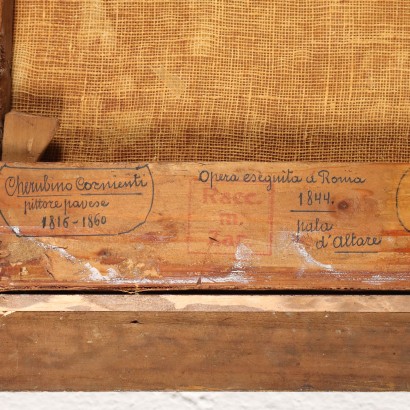 Cherubino Cornienti
pittore pavese
1816-1860
Opera eseguita a Roma
1844.
pala
d'Altare
Racc.
m.